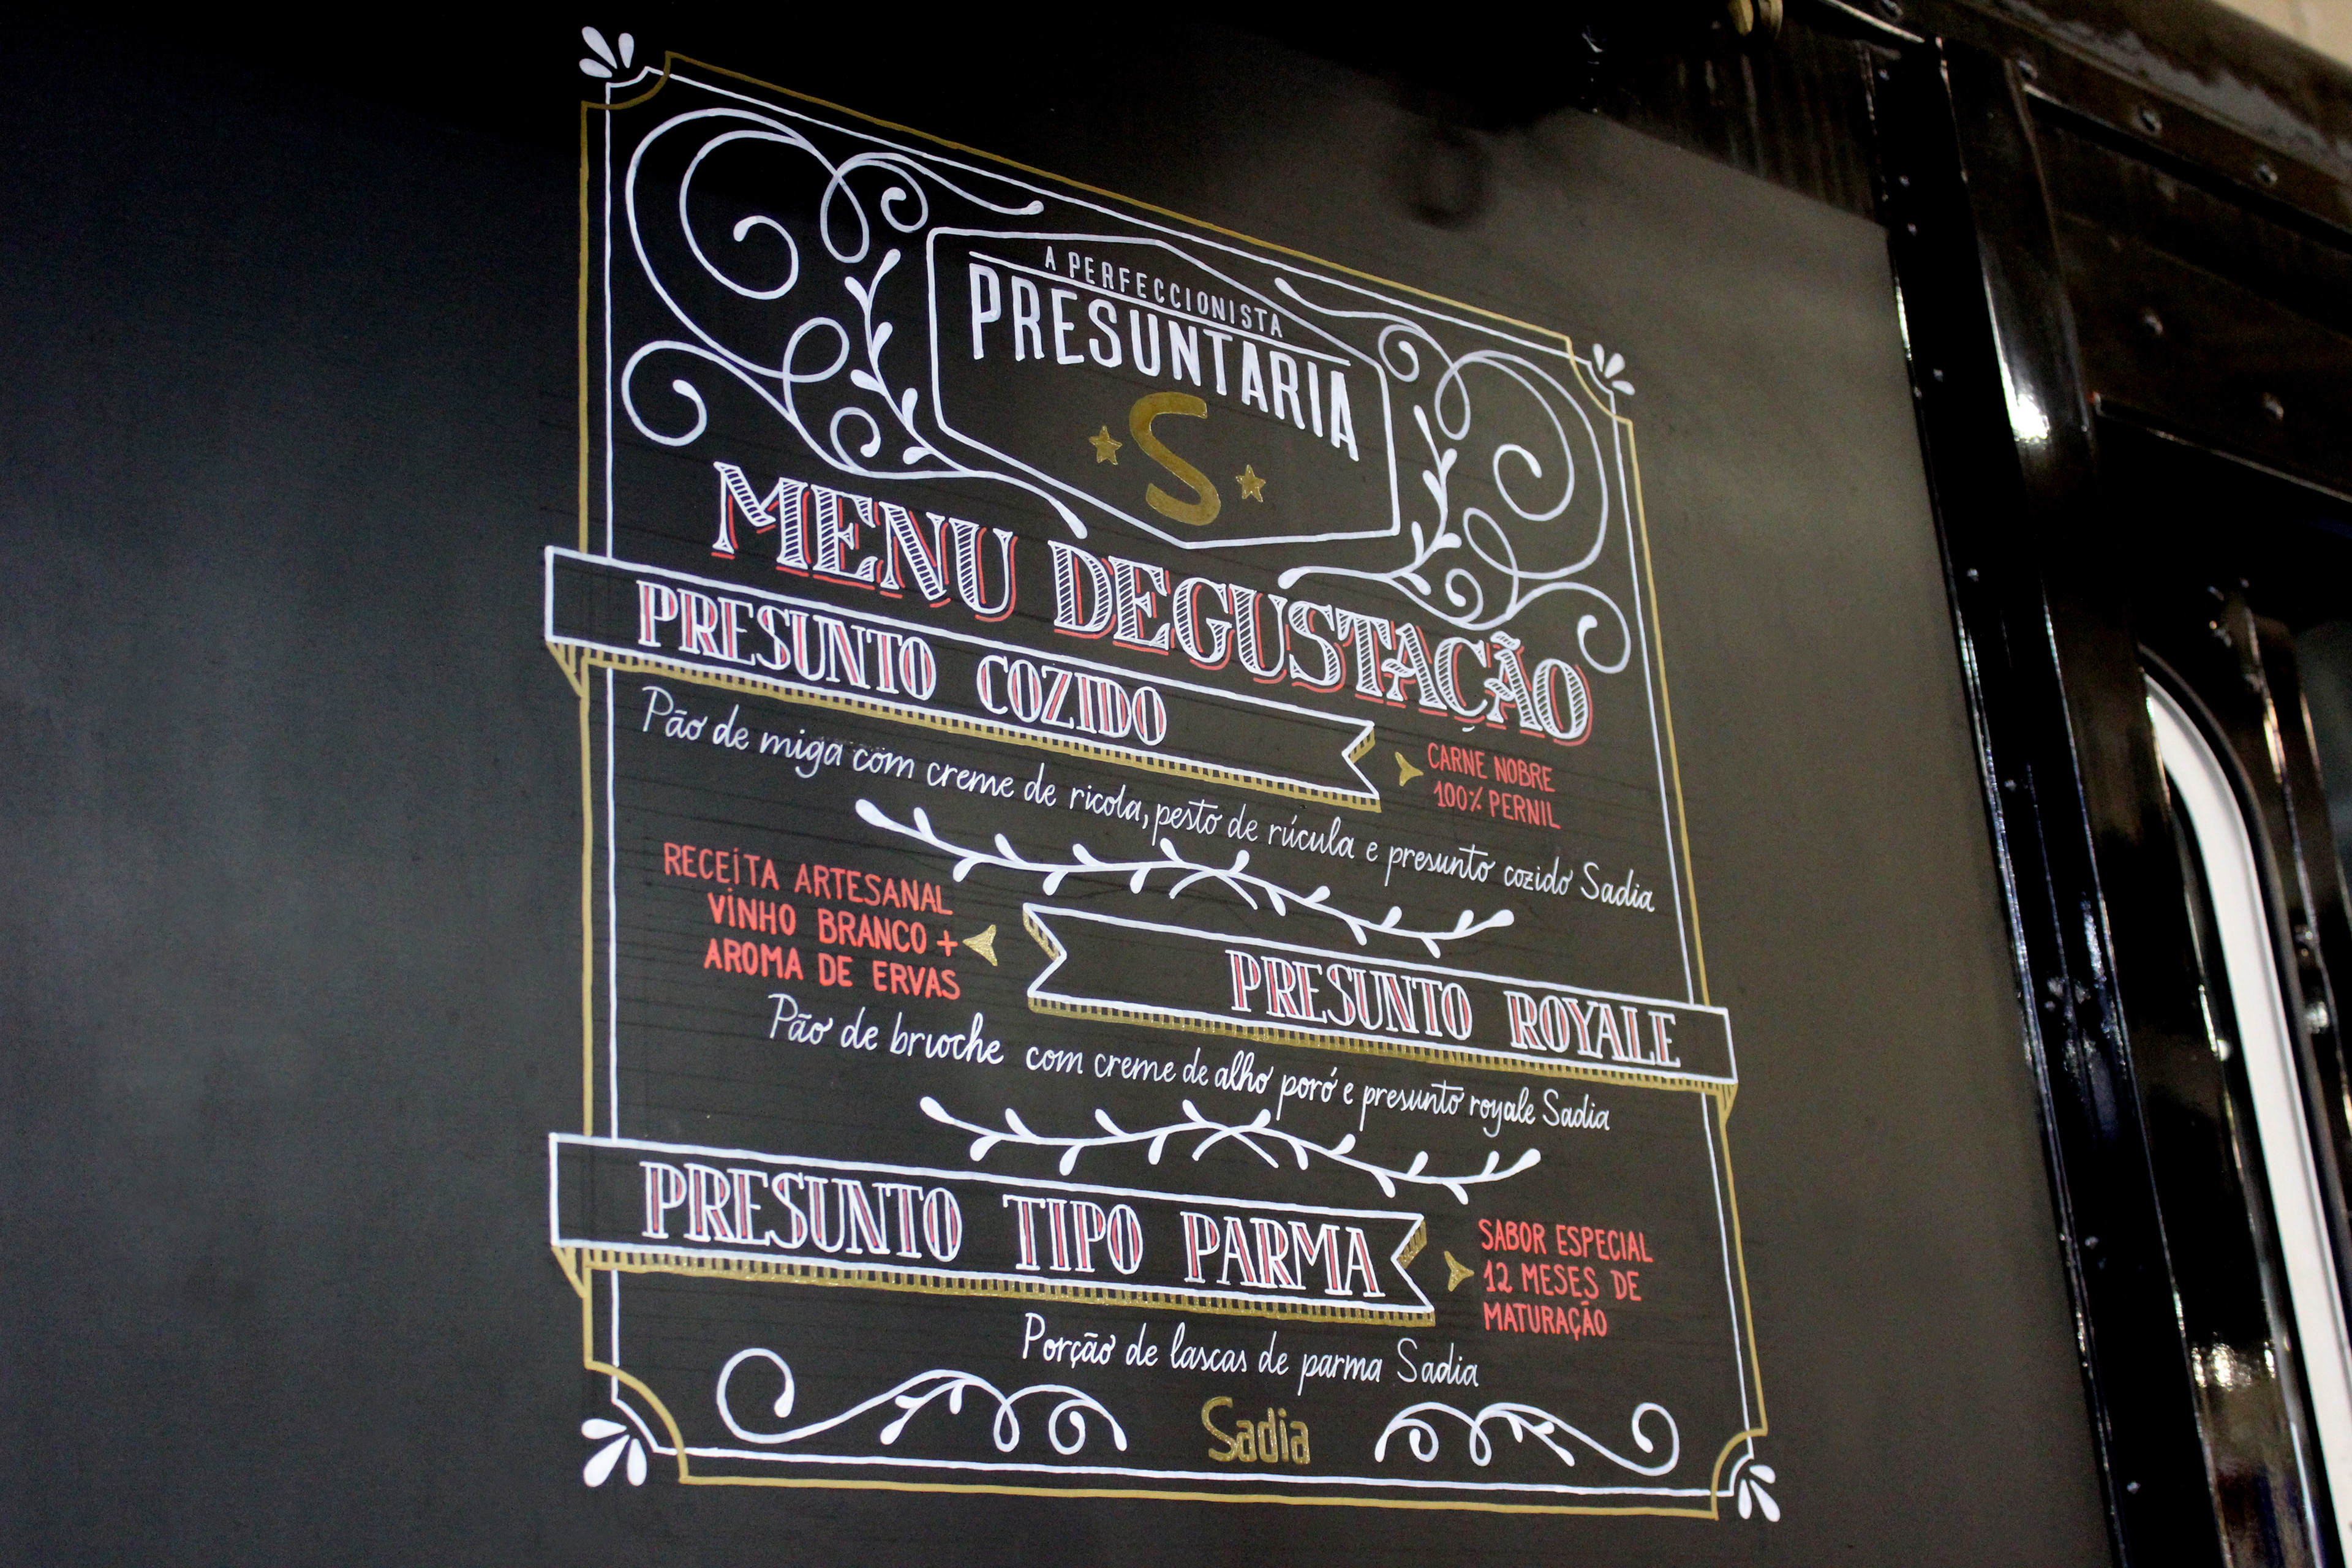 A PERFECCIONISTA
PRESUNTARIA
S
MENU DEGUSTAÇÃO
PRESUNTO COZIDO
CARNE NOBRE
100% PERNIL
Pão de miga com creme de ricota, pesto de rúcula e presunto cozido Sadia
RECEITA ARTESANAL
VINHO BRANCO +
AROMA DE ERVAS
PRESUNTO ROYALE
Pão de brioche com creme de alho poró e presunto royale Sadia
PRESUNTO TIPO PARMA
SABOR ESPECIAL
12 MESES DE
MATURAÇÃO
Porção de lascas de parma Sadia
Sadia